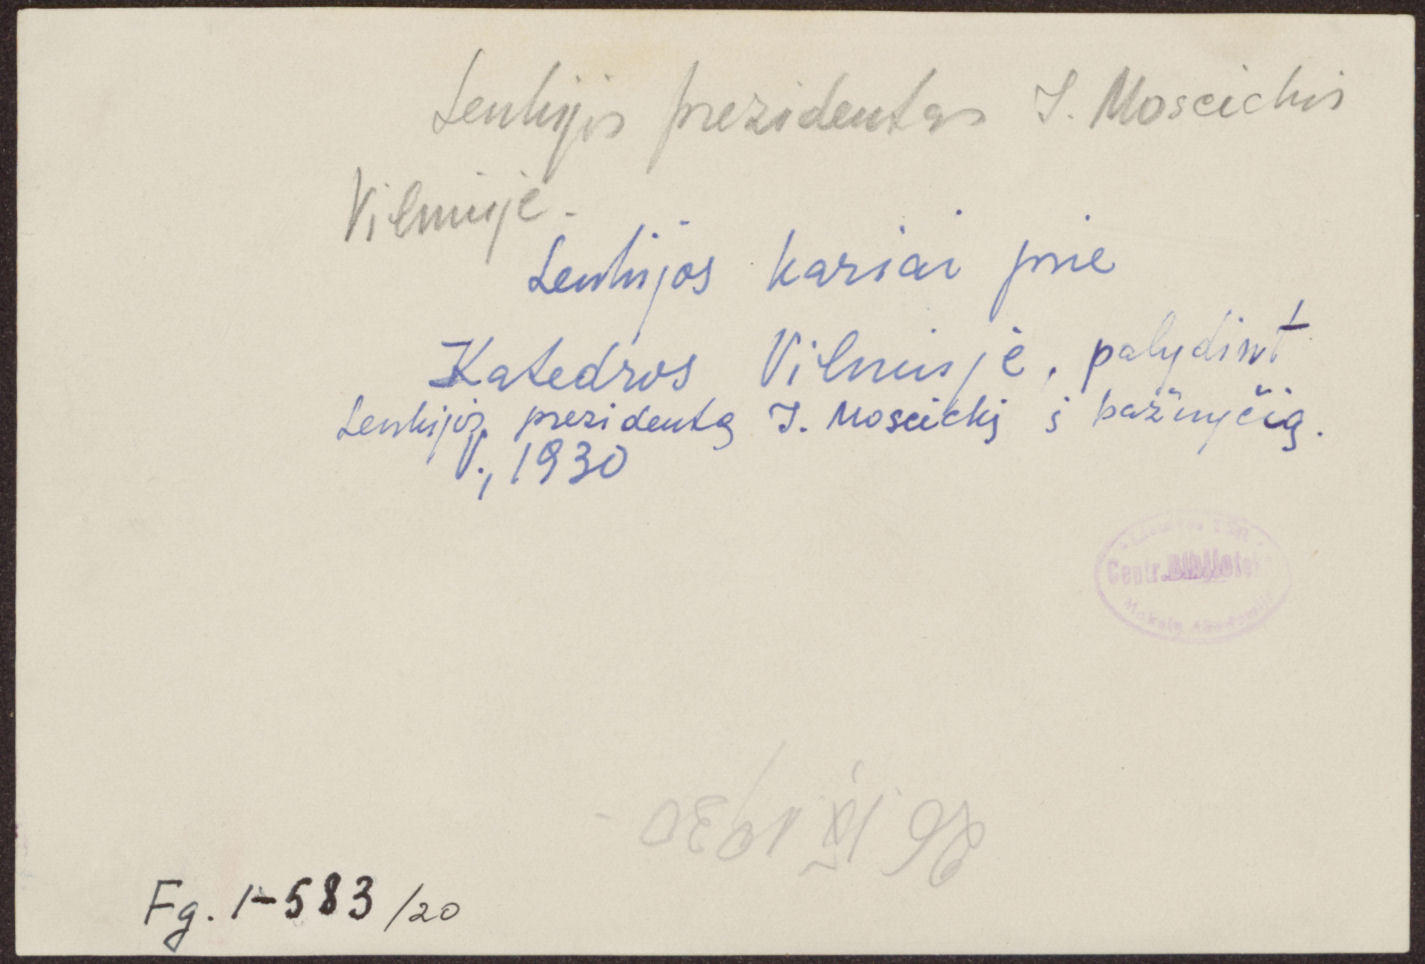 Lenkijos prezidentas I. Moscickis
Vilniuje.
Lenkijos kariai prie
Katedros Vilniuje, palydint
Lenkijos prezidentą I. Moscickį į bažnyčią.
V., 1930
Centr. Bibliotek
Mokslų Akademija
1930
Fg. 1-583/20